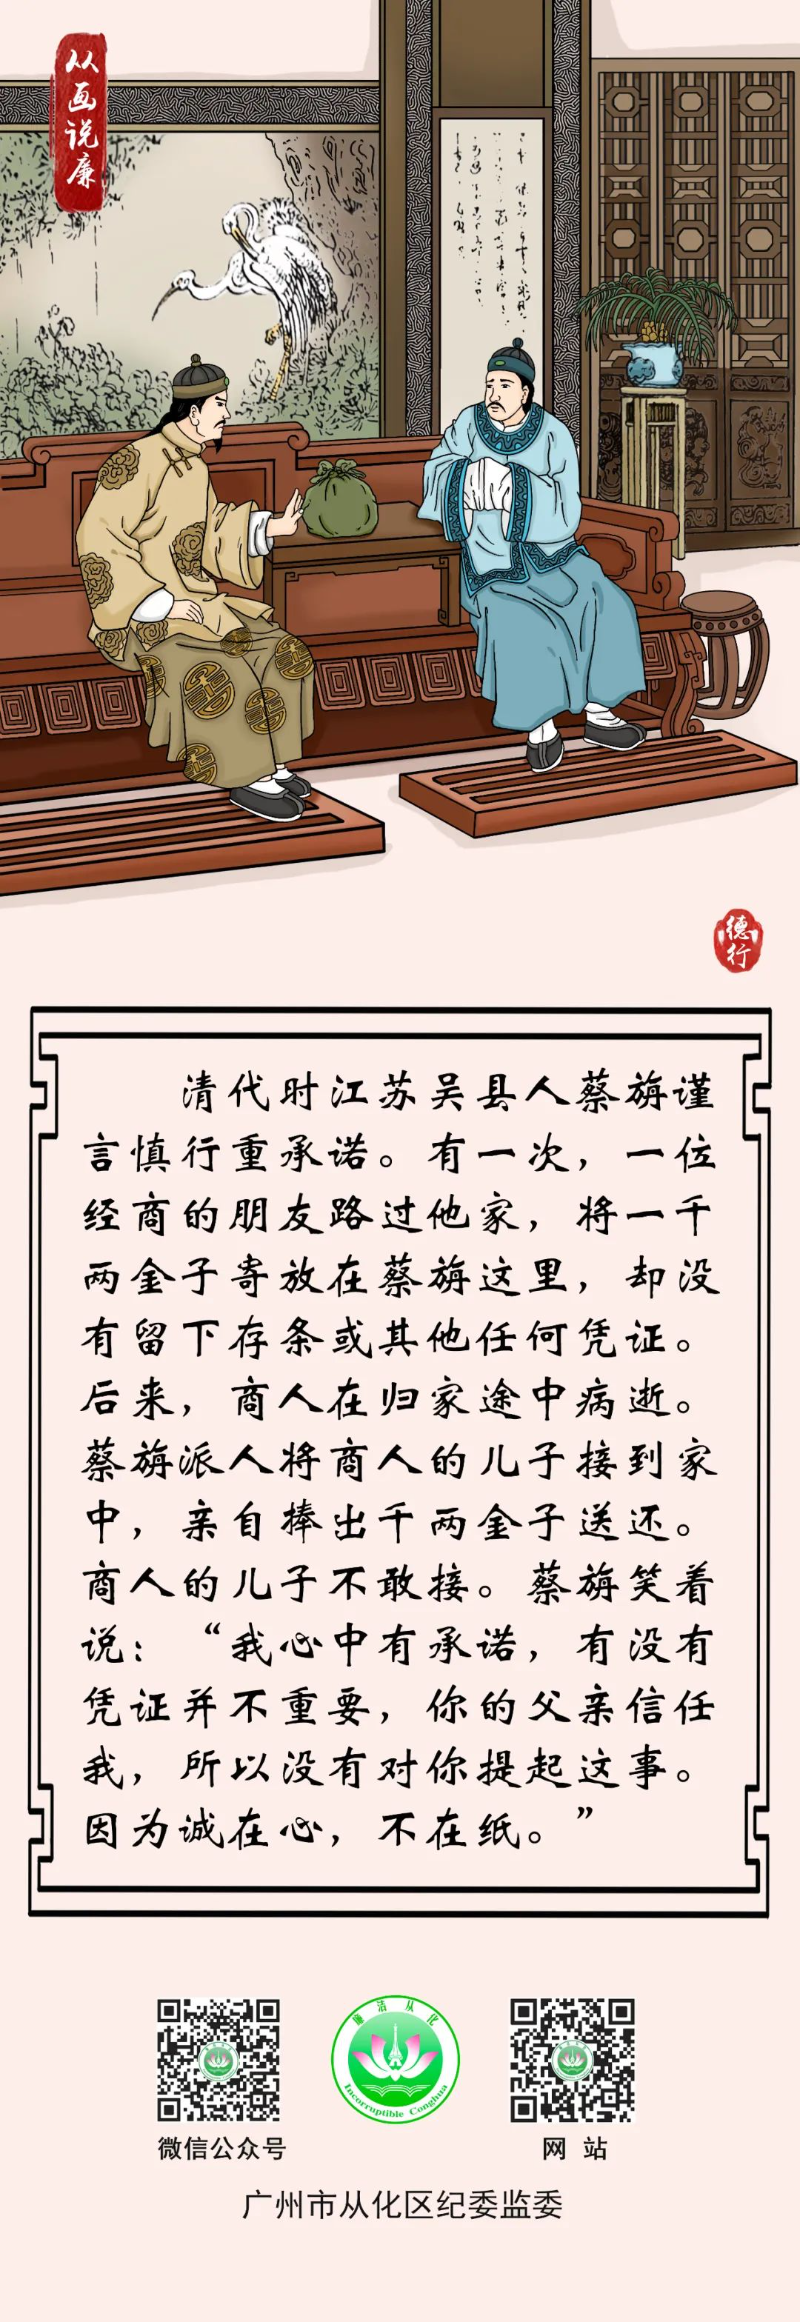 从画说廉
德行
清代时江苏吴县人蔡旃谨
言慎行重承诺。有一次，一位
经商的朋友路过他家，将一千
两金子寄放在蔡旃这里，却没
有留下存条或其他任何凭证。
后来，商人在归家途中病逝。
蔡旃派人将商人的儿子接到家
中，亲自捧出千两金子送还。
商人的儿子不敢接。蔡旃笑着
说：“我心中有承诺，有没有
凭证并不重要，你的父亲信任
我，所以没有对你提起这事。
因为诚在心，不在纸。”
廉洁从化
Incorruptible Conghua
微信公众号
网 站
广州市从化区纪委监委